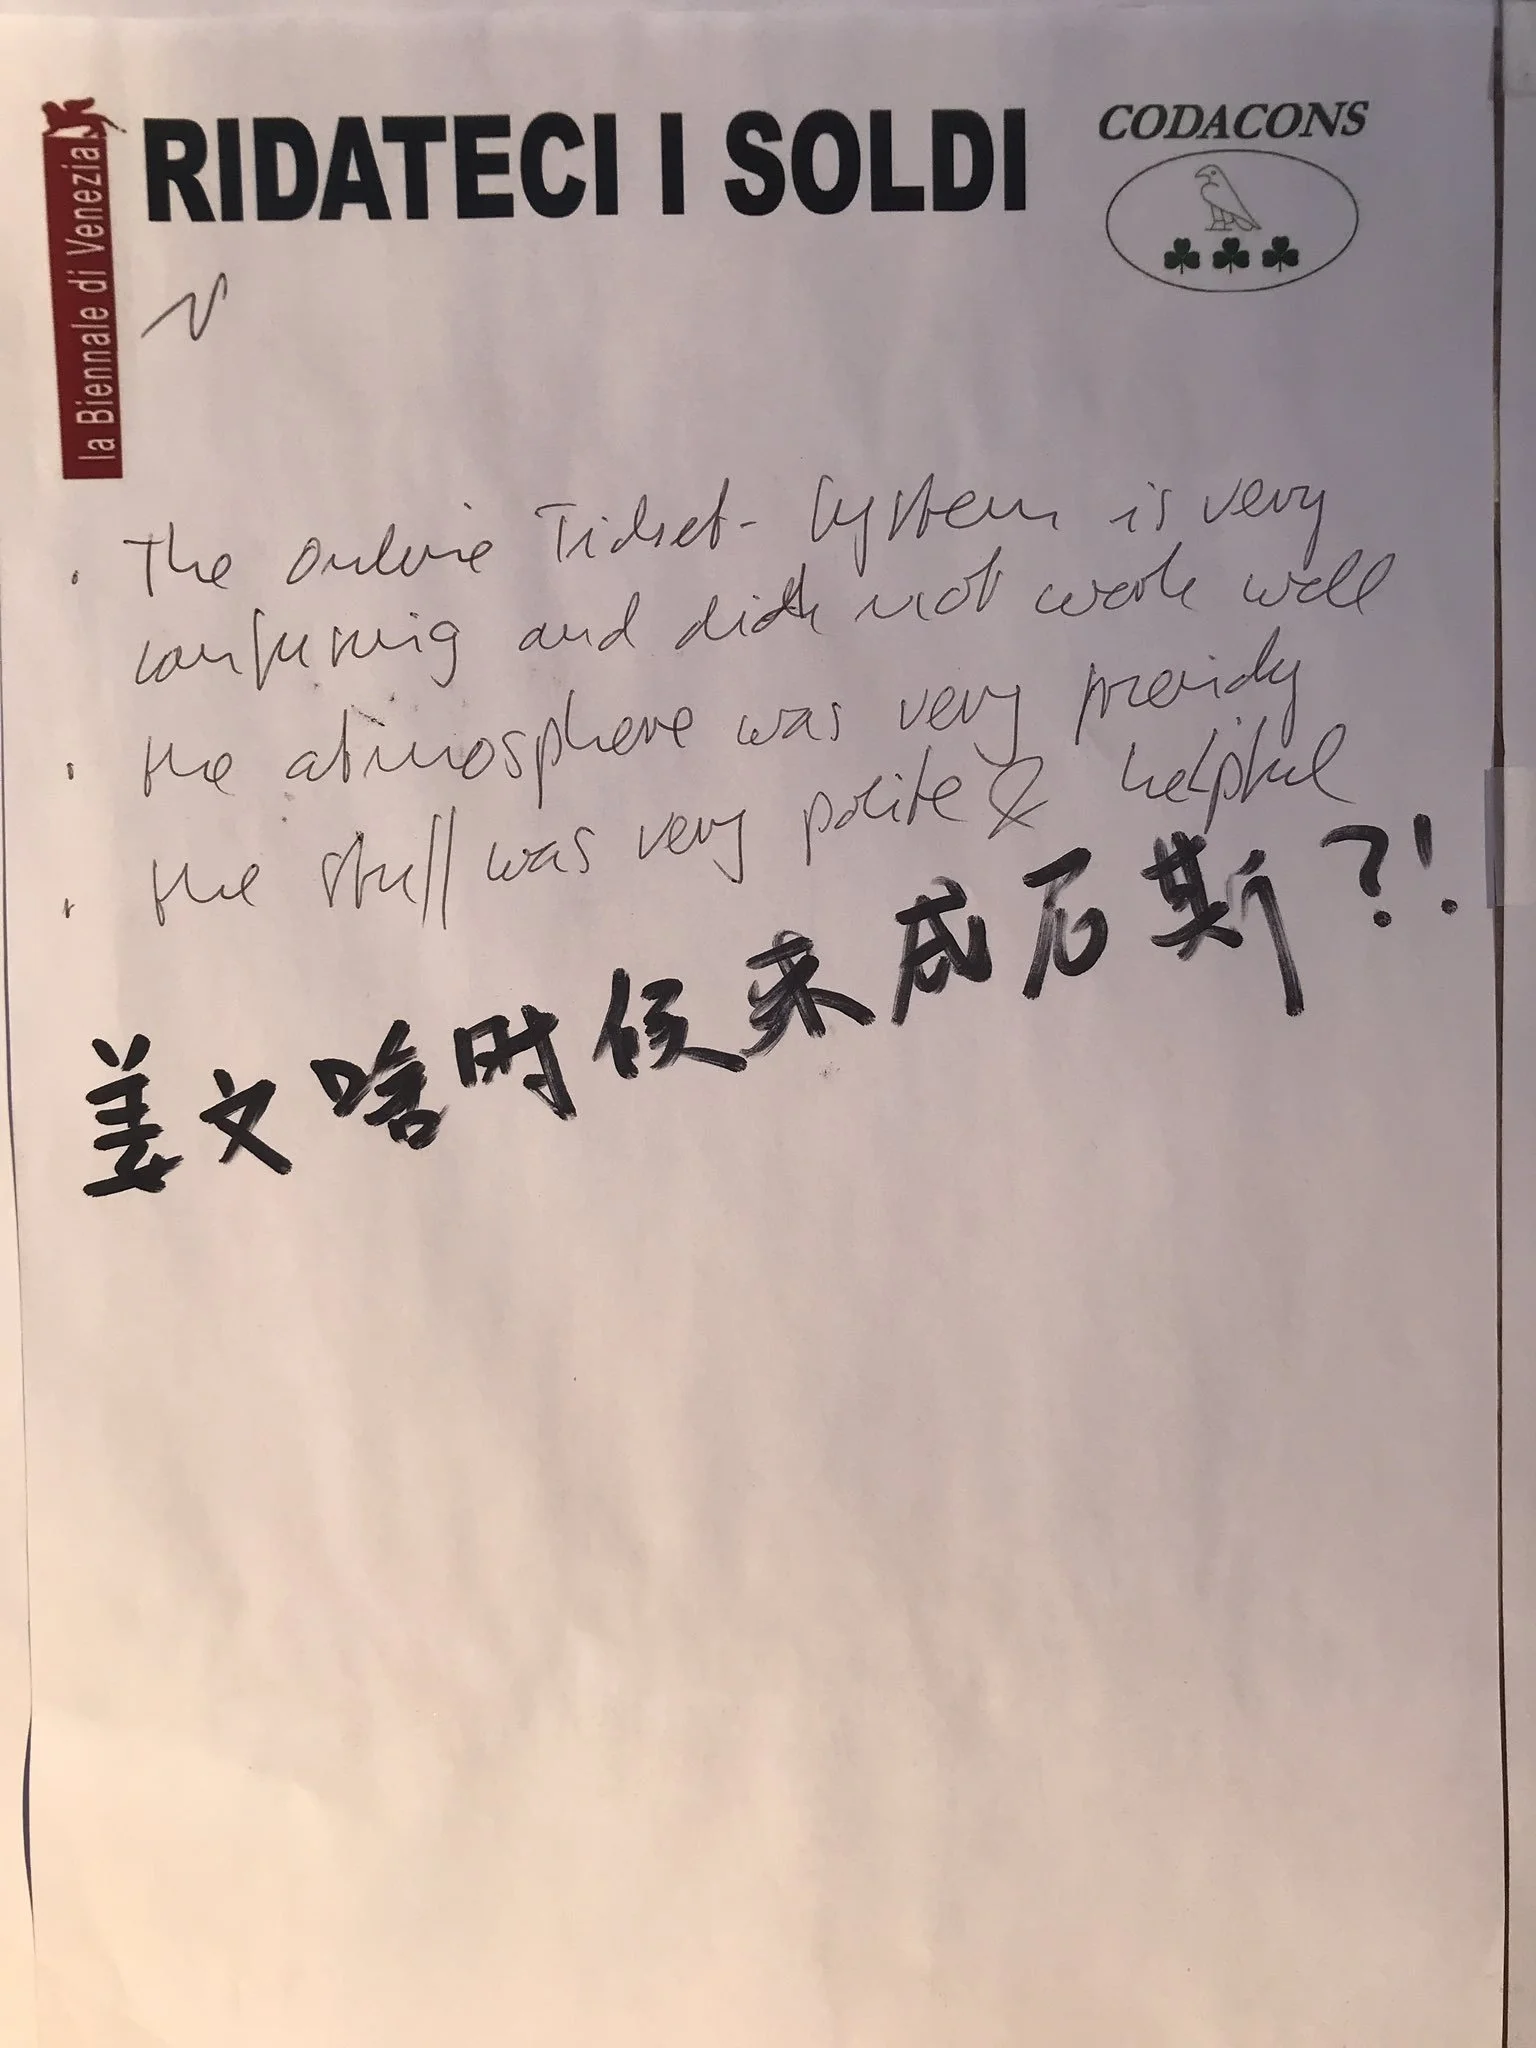 la Biennale di Venezia
RIDATECI I SOLDI
CODACONS
· The online Ticket-System is very
confusing and did not work well
· the atmosphere was very
· the staff was very polite & helpful
姜文啥时候来威尼斯?!